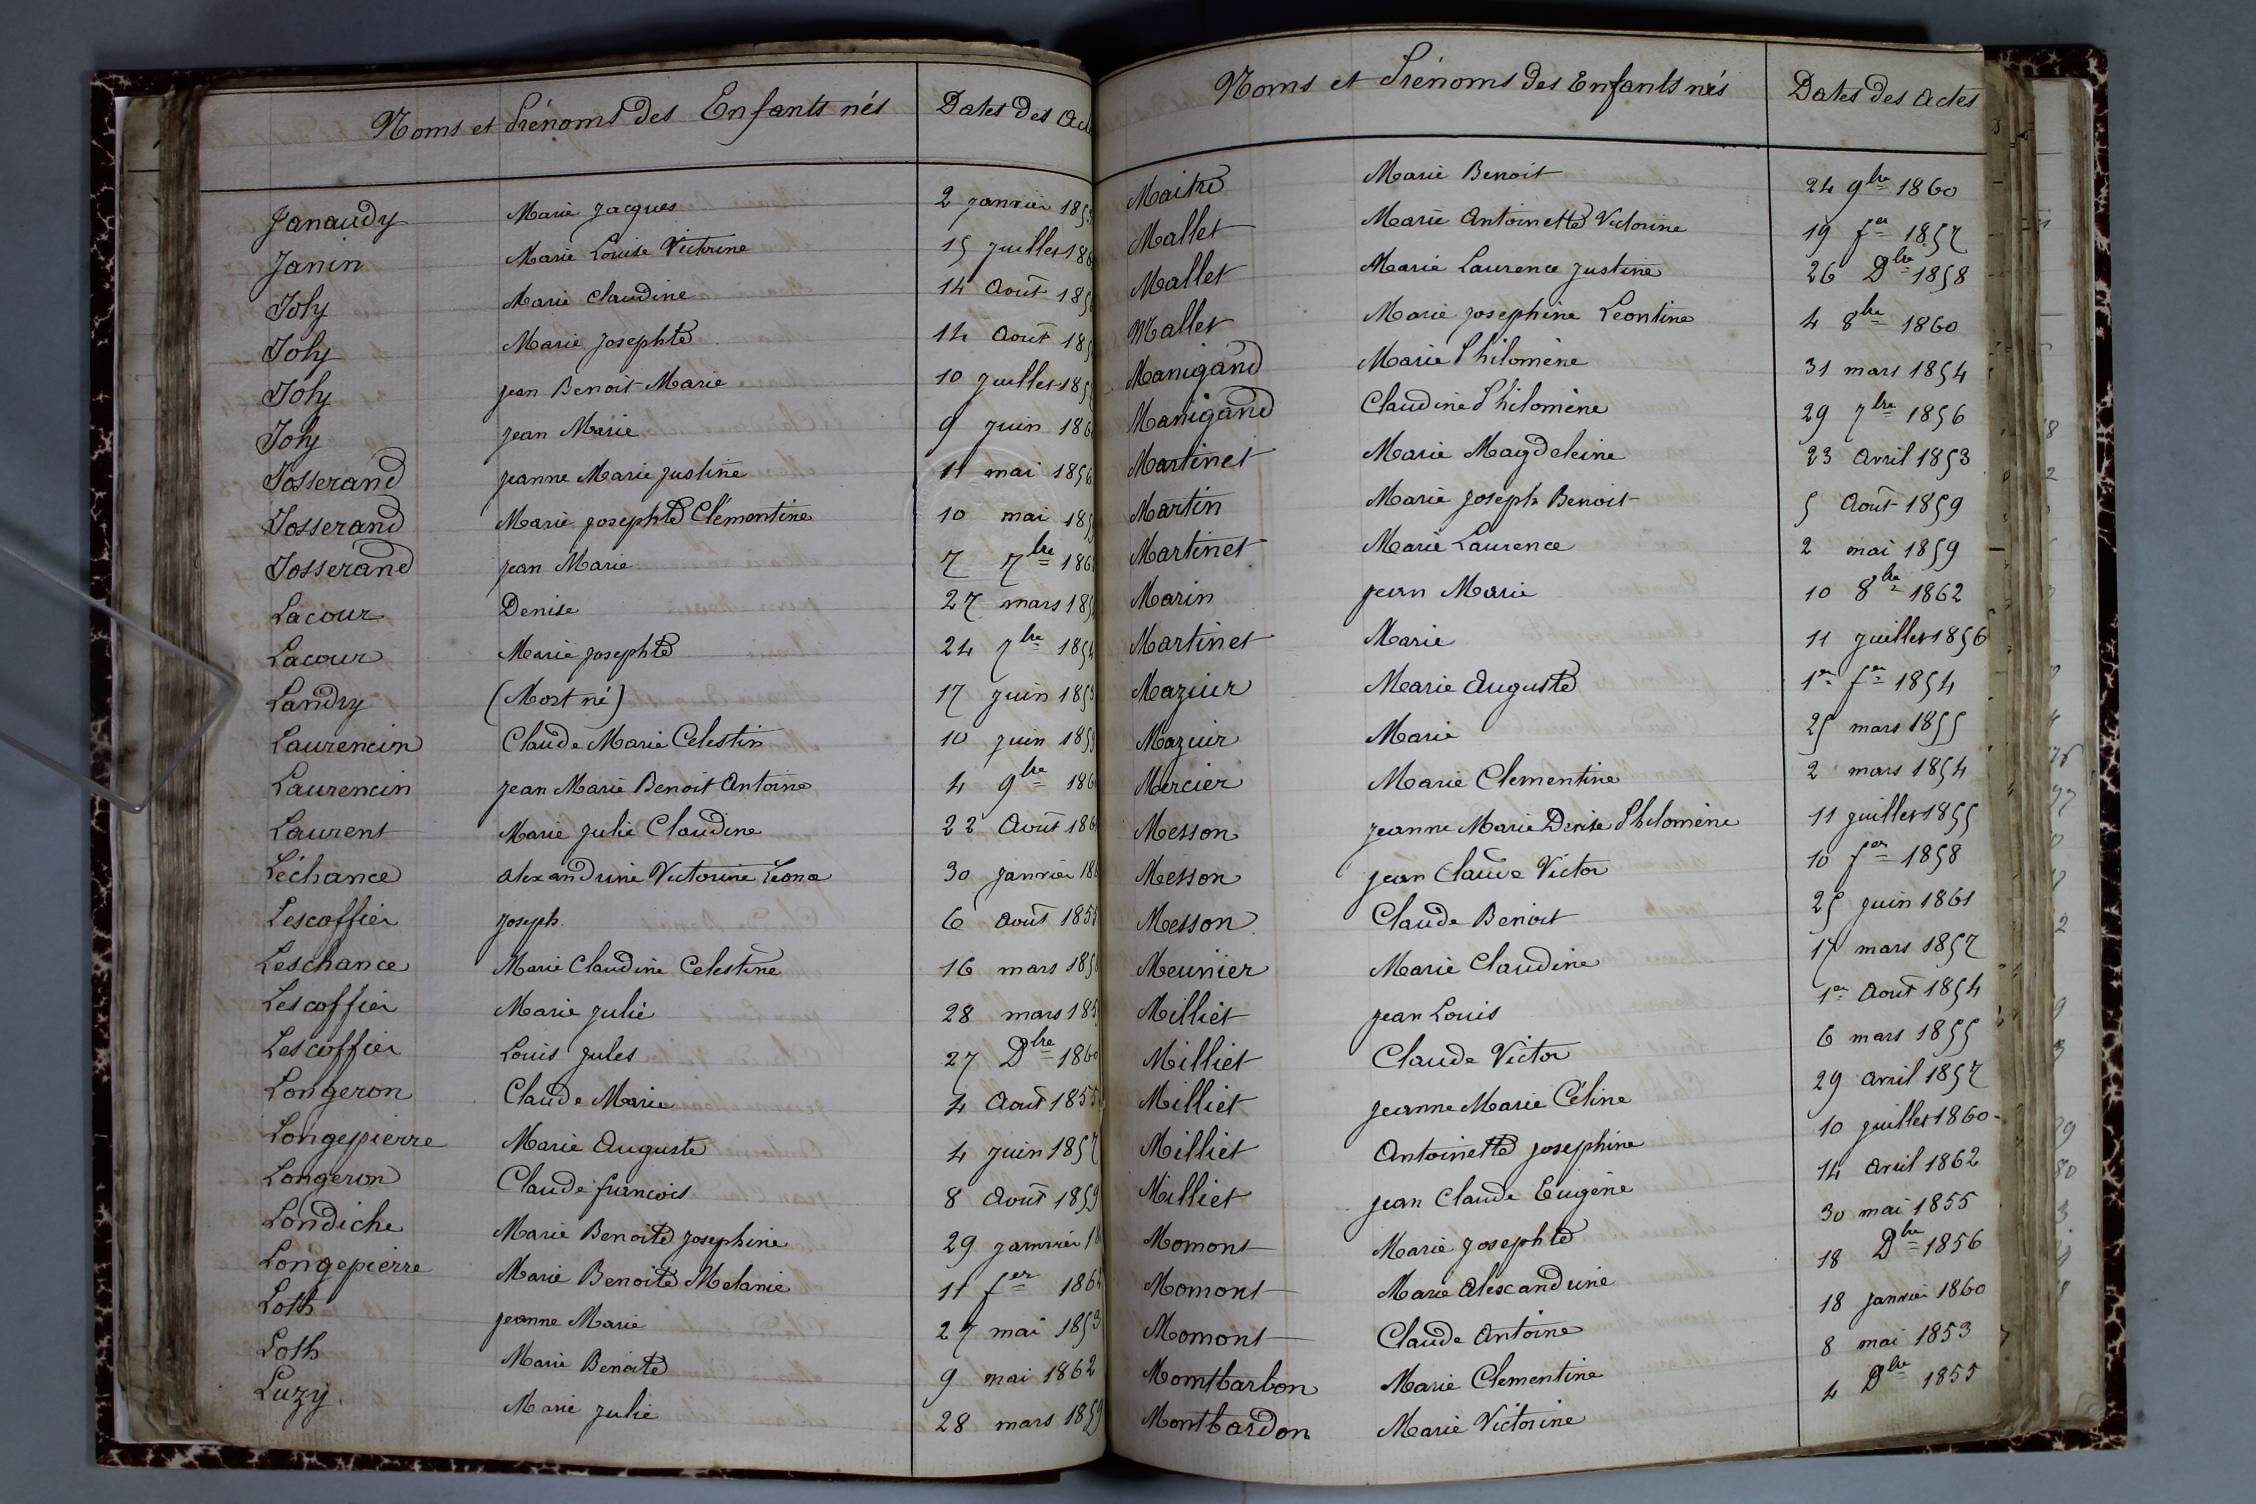 Noms et Prénoms des Enfants nés Dates des Act
Janaudy Marie Jacques 2 Janvier 185
Janin Marie Louise Victorine 15 Juillet 186
Joly Marie Claudine 14 Août 185
Joly Marie Josephte 14 Août 185
Joly Jean Benoit Marie 10 Juillet 185
Joly Jean Marie 9 Juin 186
Josserand Jeanne Marie Justine 11 mai 1856
Josserand Marie Josephte Clémentine 10 mai 185
Josserand Jean Marie 7 7bre 186
Lacour Denise 27 mars 185
Lacour Marie Josephte 24 7bre 1854
Landry (Mort né) 17 Juin 1853
Laurencin Claude Marie Celestin 10 Juin 1859
Laurencin Jean Marie Benoit Antoine 4 9bre 186
Laurent Marie Julie Claudine 22 Août 186
Léchance Alexandrine Victorine 30 Janvier 18
Lescoffier Joseph 6 Août 1855
Leschance Marie Claudine Celestine 16 mars 185
Lescoffier Marie Julie 28 mars 185
Lescoffier Louis Jules 27 Dbre 1860
Longeron Claude Marie 4 Août 1855
Longepierre Marie Auguste 4 Juin 1857
Longeron Claude françois 8 Août 1859
Londiche Marie Benoite Josephine 29 Janvier 18
Longepierre Marie Benoite Melanie 11 fer 186
Loth Jeanne Marie 27 mai 1853
Loth Marie Benoite 9 mai 1862
Luzy Marie Julie 28 mars 1859
Noms et Prénoms des Enfants nés Dates des Actes
Maitre Marie Benoit 24 9bre 1860
Mallet Marie Antoinette Victorine 19 fer 1857
Mallet Marie Laurence Justine 26 Dbre 1858
Mallet Marie Josephine Leontine 4 8bre 1860
Manigand Marie Philomène 31 mars 1854
Manigand Claudine Philomène 29 7bre 1856
Martinet Marie Magdeleine 23 Avril 1853
Martin Marie Joseph Benoit 5 Août 1859
Martinet Marie Laurence 2 mai 1859
Marin Jean Marie 10 8bre 1862
Martinet Marie 11 Juillet 1856
Maziur Marie Auguste 1er fer 1854
Maziur Marie 25 mars 1855
Mercier Marie Clementine 2 mars 1854
Messon Jeanne Marie Denise Philomène 11 Juillet 1855
Messon Jean Claude Victor 10 fer 1858
Messon Claude Benoit 25 Juin 1861
Meunier Marie Claudine 17 mars 1857
Milliet Jean Louis 1er Août 1854
Milliet Claude Victor 6 mars 1855
Milliet Jeanne Marie Céline 29 Avril 1857
Milliet Antoinette Josephine 10 Juillet 1860
Milliet Jean Claude Eugène 14 Avril 1862
Momont Marie Josephte 30 mai 1855
Momont Marie Alexandrine 18 Dbre 1856
Momont Claude Antoine 18 Janvier 1860
Montbarbon Marie Clementine 8 mai 1853
Montbardon Marie Victorine 4 Dbre 1855